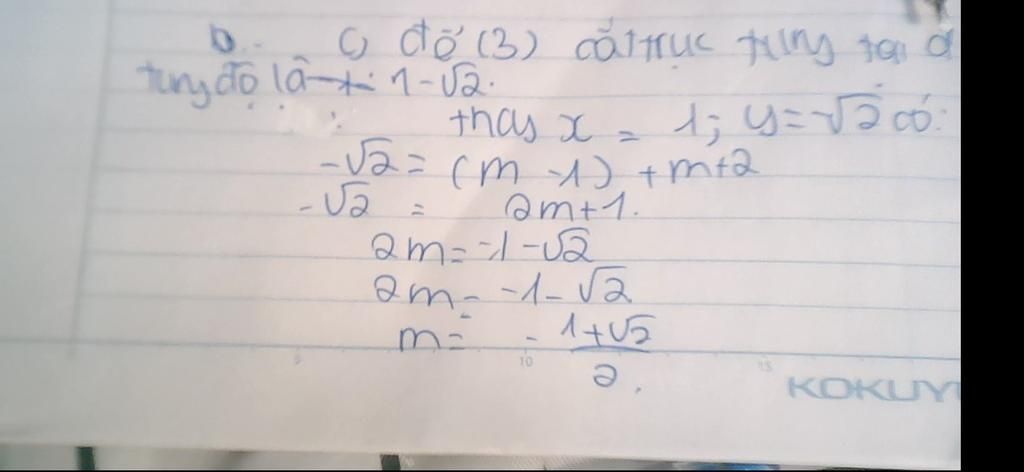 c) để (3) cắt trục tung tại đ
tung độ là 1-√2.
thay x = 1; y=-√2 có:
-√2 = (m -1) +m+2
-√2 = 2m+1.
2m= -1-√2
2m= -1-√2
m= - 1+√2
2.
5 10 15
KOKUY